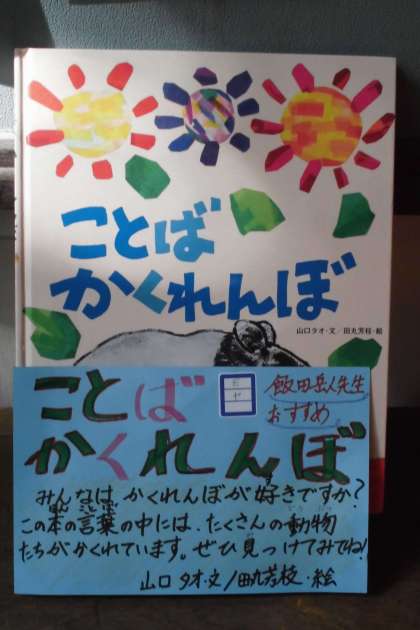 ことば
かくれんぼ
山口タオ・文／田丸芳枝・絵
ことば
かくれんぼ
飯田岳人先生
おすすめ
みんなは かくれんぼが好きですか？
この本の言葉の中には、たくさんの動物
たちがかくれています。ぜひ見つけてみてね！
山口 タオ・文/田丸芳枝・絵